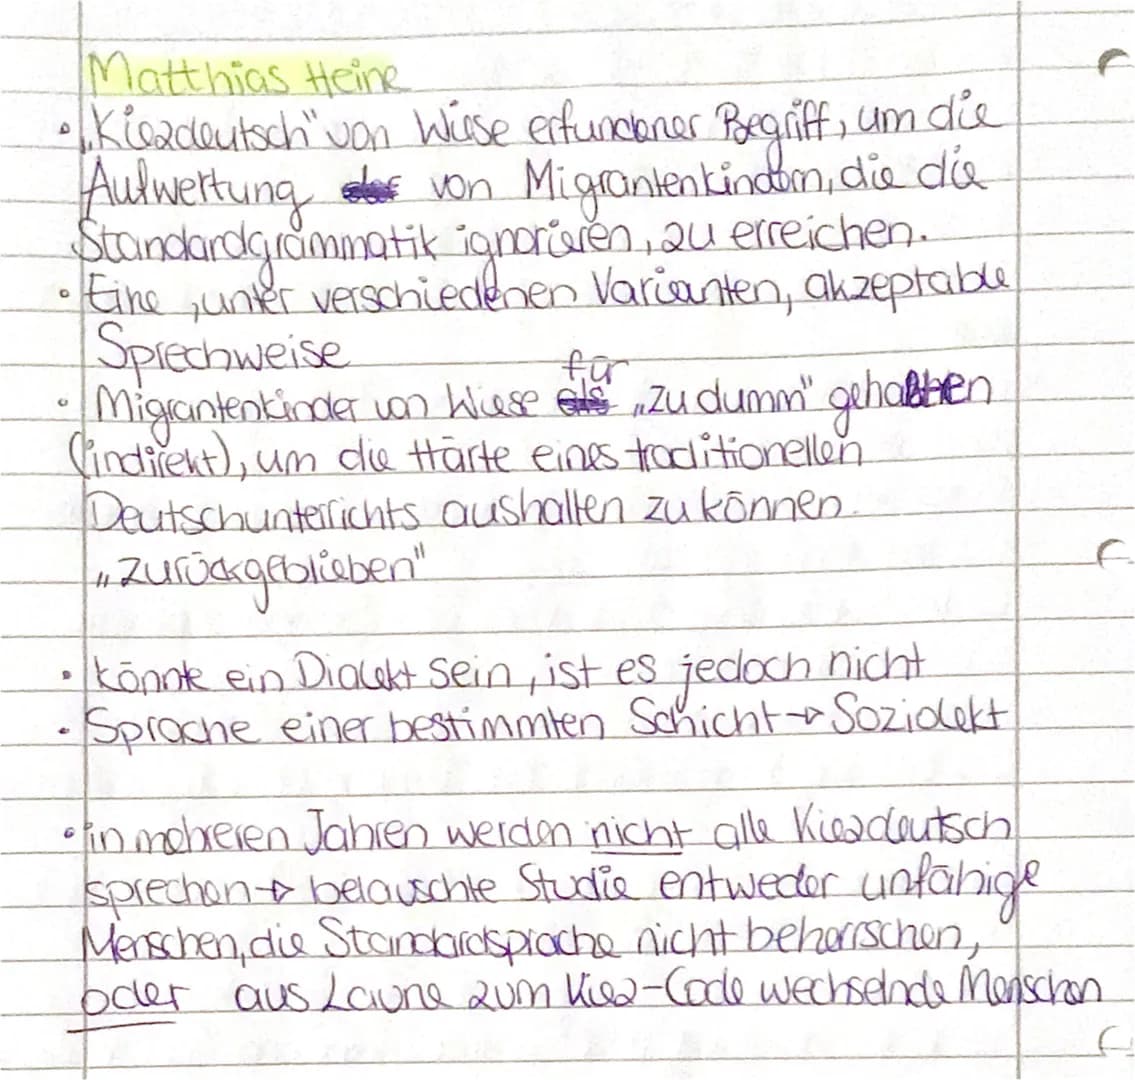 Matthias Heine
• „Kiezdeutsch" von Wiese erfundener Begriff, um die
Aufwertung von Migrantenkindern, die die
Standardgrammatik ignorieren, zu erreichen.
• Eine, unter verschiedenen Varianten, akzeptable
Sprechweise
für
• Migrantenkinder von Wiese „zu dumm" gehalten
(indirekt), um die Härte eines traditionellen
Deutschunterrichts aushalten zu können.
„zurückgeblieben"
• könnte ein Dialekt sein, ist es jedoch nicht
• Sprache einer bestimmten Schicht → Soziolekt
• in mehreren Jahren werden nicht alle Kiezdeutsch
sprechen → belauschte Studie entweder unfähige
Menschen, die Standardsprache nicht beherrschen,
oder aus Laune zum Kiez-Code wechselnde Menschen